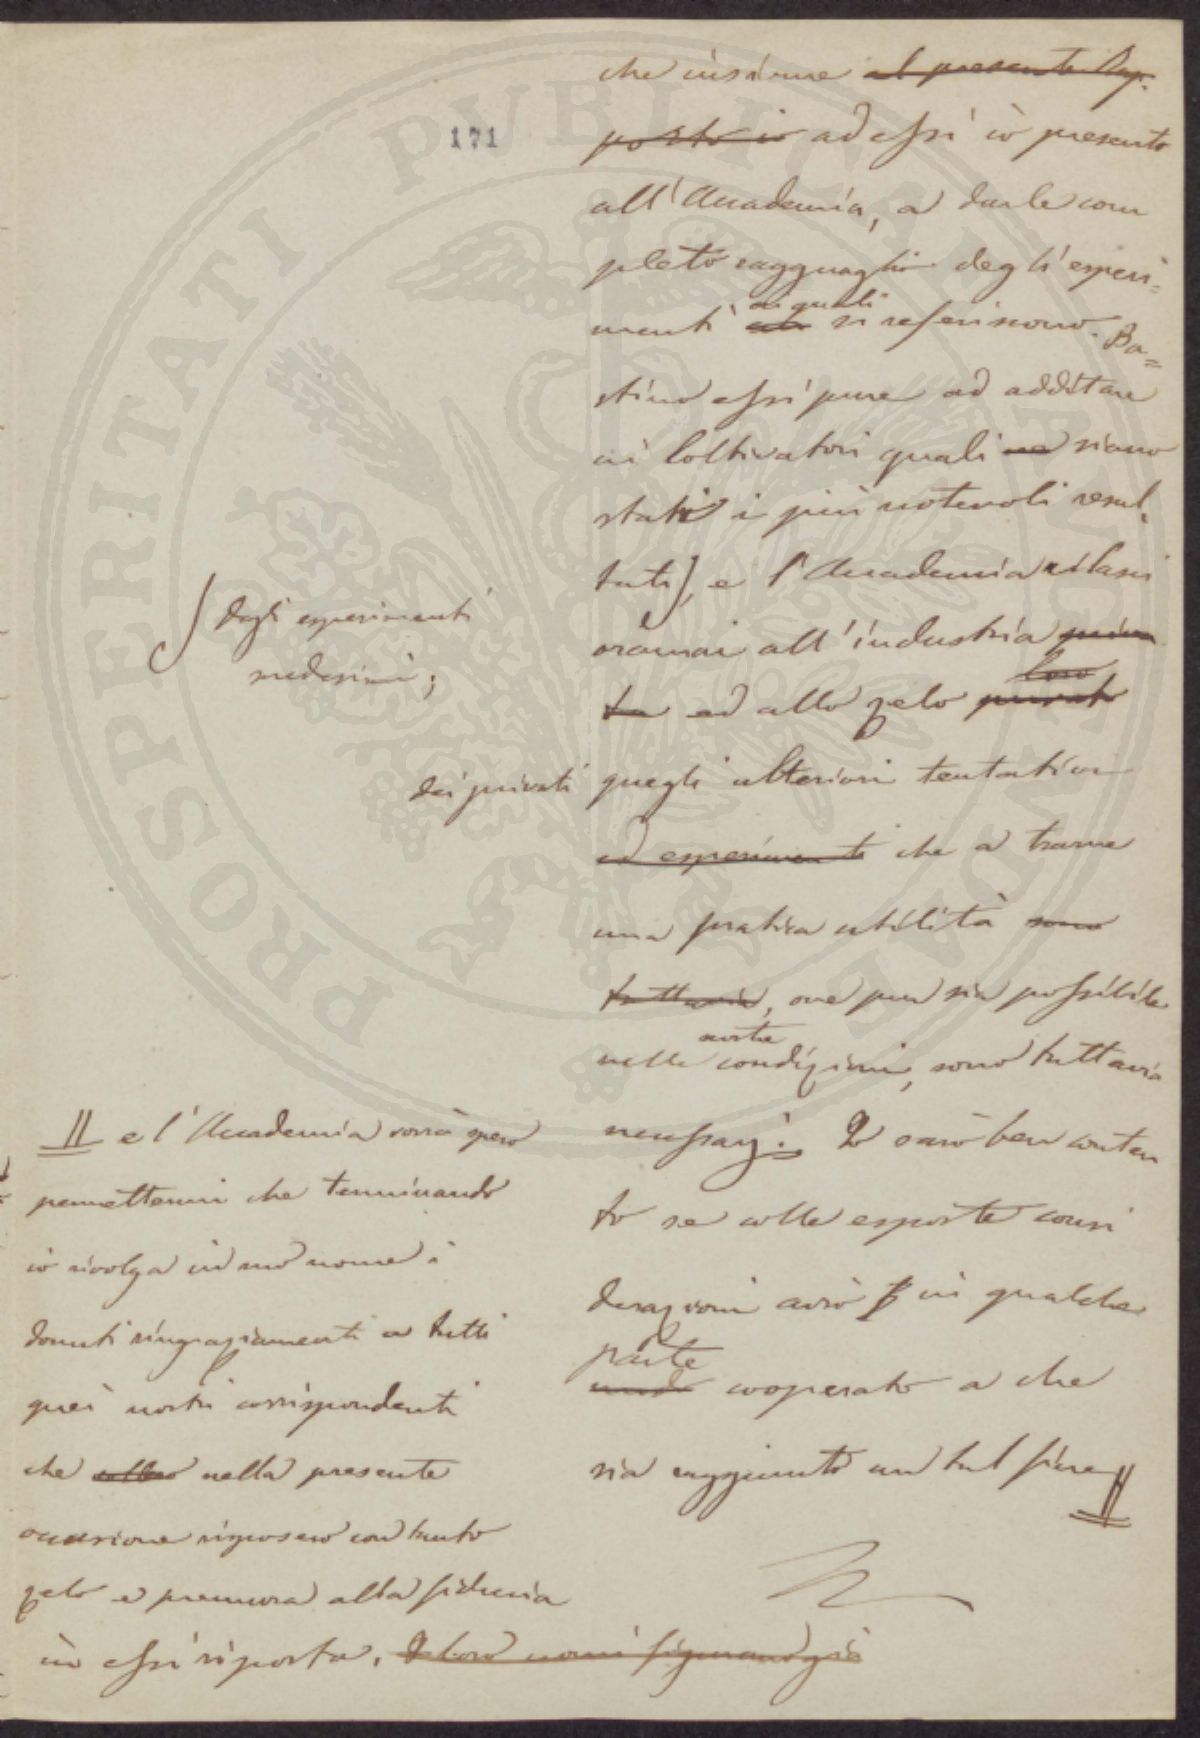 171
che insieme al presente Rap-
porto io ad essi io presento
all'Accademia, a darle com
pleto ragguaglio degli esperi=
menti ai quali si riferiscono. Ba=
stino essi pure ad additare
ai Coltivatori quali ne siano
stati i più notevoli resul-
tati], e l'Accademia rilasci
oramai all'industria priva
ta ed allo zelo loro privato
quegli ulteriori tentativi
ed esperimenti che a trarne
una pratica utilità sono
tuttavia, ove pur sia possibile
nelle nostre condizioni, sono tuttavia
necessarj. Io sarò ben conten
to se colle esposte consi
derazioni avrò in qualche
parte cooperato a che
sia raggiunto un tal fine
∫ degli esperimenti
medesimi;
dei privati
e l'Accademia vorrà spero
permettermi che terminando
io rivolga in suo nome i
dovuti ringraziamenti a tutti
quei nostri corrispondenti
che nella presente
occasione risposero con tanto
zelo e premura alla fiducia
in essi riposta. I loro nomi figurano già
PROSPERITATI PUBLICAE AUGENDAE